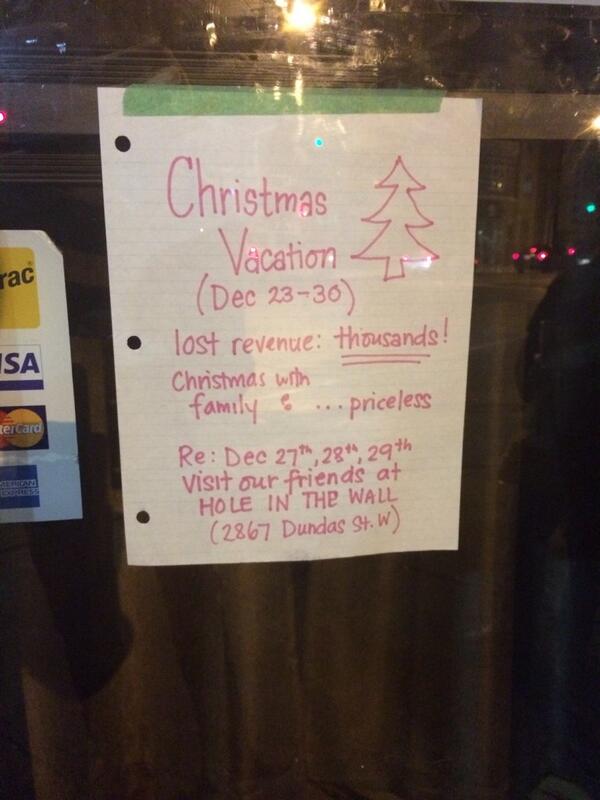 Christmas
Vacation
(Dec 23-30)
lost revenue: thousands!
Christmas with
family & ... priceless
Re: Dec 27th, 28th, 29th
Visit our friends at
HOLE IN THE WALL
(2867 Dundas St. W)
rac
VISA
terCard
MERICAN
EXPRESS